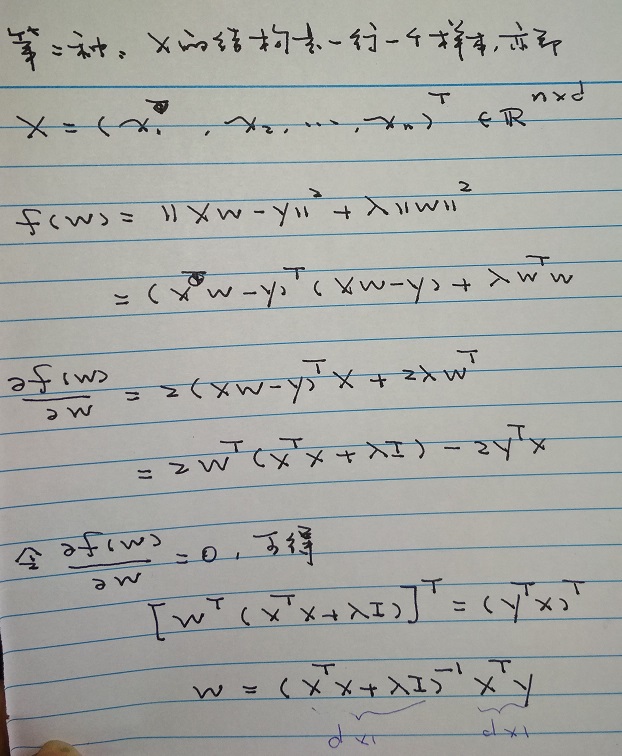 第二种: X的结构是一行一个样本, 亦即
X = (x₁, x₂, ..., xₙ)ᵀ ∈ ℝⁿˣᵈ
f(w) = ||Xw - y||² + λ||w||²
= (Xw - y)ᵀ(Xw - y) + λwᵀw
∂f(w)/∂w = 2(Xw - y)ᵀX + 2λwᵀ
= 2wᵀ(XᵀX + λI) - 2yᵀX
令 ∂f(w)/∂w = 0, 可得
[wᵀ(XᵀX + λI)]ᵀ = (yᵀX)ᵀ
w = (XᵀX + λI)⁻¹Xᵀy
d×1